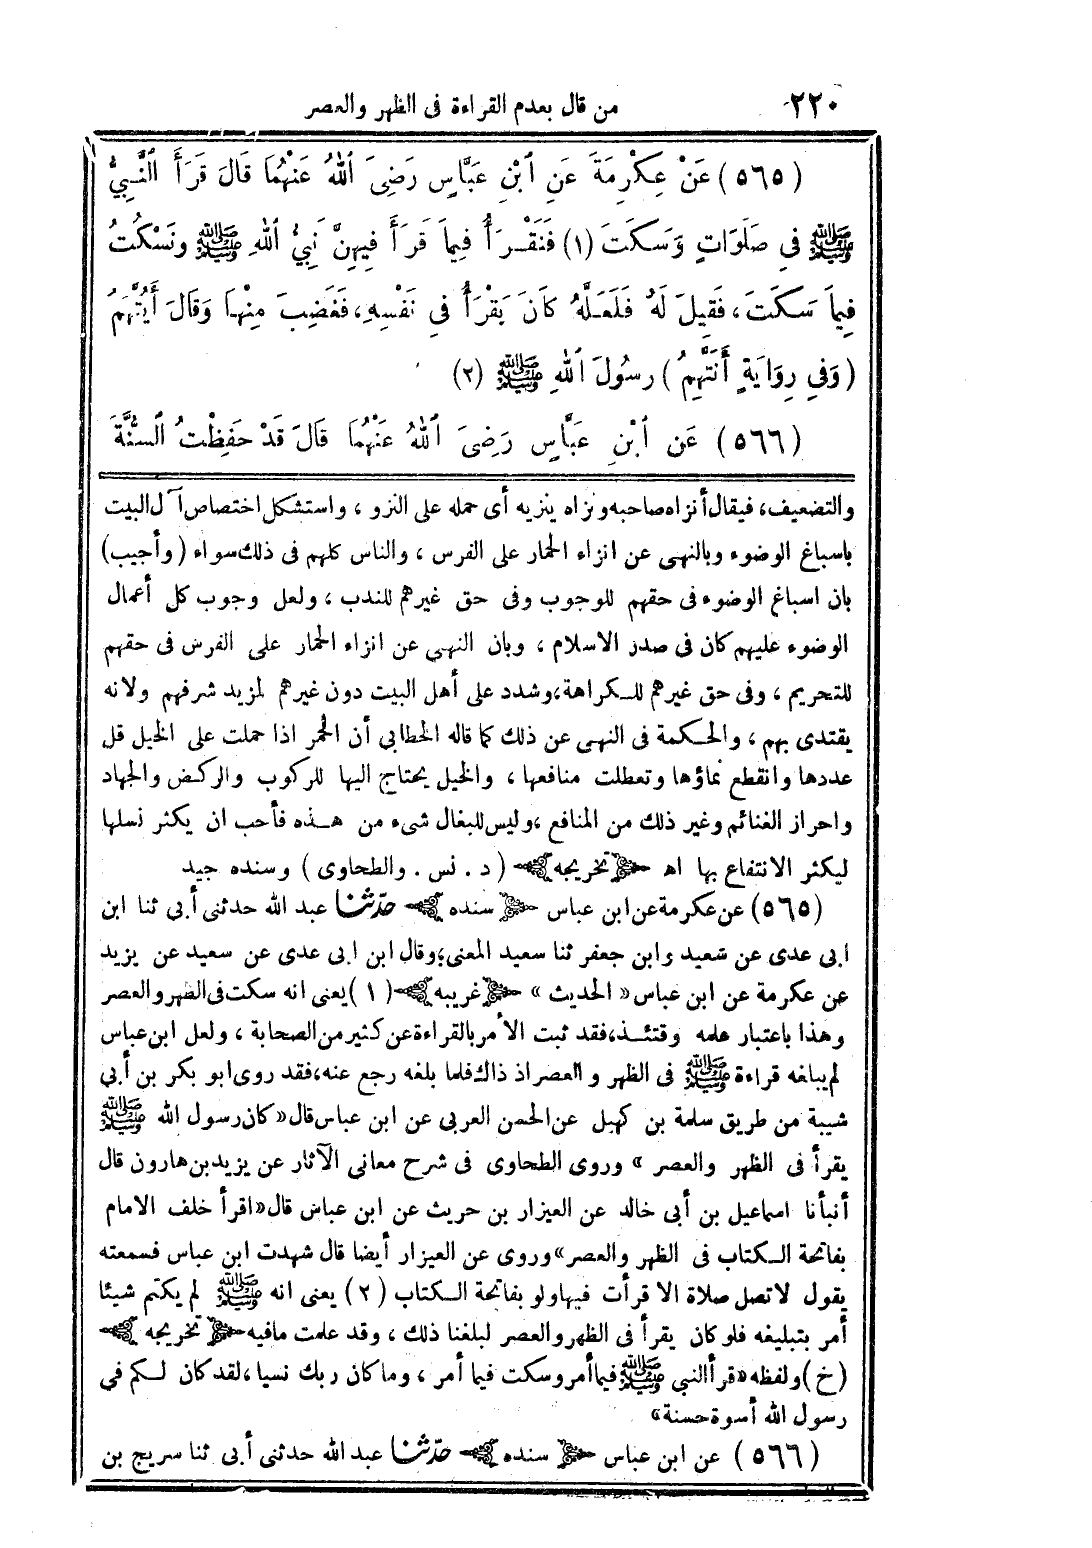 ٢٢٠ من قال بعدم القراءة فى الظهر والعصر
(٥٦٥) عَنْ عِكْرِمَةَ عَنِ ٱبْنِ عَبَّاسٍ رَضِىَ ٱللهُ عَنْهُمَا قَالَ قَرَأَ ٱلنَّبِيُّ
ﷺ فِي صَلَوَاتٍ وَسَكَتَ (١) فَنَقْرَأُ فِيمَا قَرَأَ فِيهِنَّ نَبِيُّ ٱللهِ ﷺ وَنَسْكُتُ
فِيمَا سَكَتَ، فَقِيلَ لَهُ فَلَعَلَّهُ كَانَ يَقْرَأُ فِي نَفْسِهِ، فَغَضِبَ مِنْهَا وَقَالَ أَيُتَّهَمُ
(وَفِي رِوَايَةٍ أَنَتَّهِمُ) رَسُولَ ٱللهِ ﷺ (٢)
(٥٦٦) عَنِ ٱبْنِ عَبَّاسٍ رَضِىَ ٱللهُ عَنْهُمَا قَالَ قَدْ حَفِظْتُ ٱلسُّنَّةَ
والتضعيف، فيقال أنزاه صاحبه ونزاه ينزيه أى حمله على النزو ، واستشكل اختصاص آل البيت
باسباغ الوضوء وبالنهى عن انزاء الحمار على الفرس ، والناس كلهم فى ذلك سواء (وأجيب)
بان اسباغ الوضوء فى حقهم للوجوب وفى حق غيرهم للندب ، ولعل وجوب كل أعمال
الوضوء عليهم كان فى صدر الاسلام ، وبان النهى عن انزاء الحمار على الفرس فى حقهم
للتحريم ، وفى حق غيرهم للكراهة، وشدد على أهل البيت دون غيرهم لمزيد شرفهم ولانه
يقتدى بهم ، والحكمة فى النهى عن ذلك كما قاله الخطابى أن الحمر اذا حملت على الخيل قل
عددها وانقطع نماؤها وتعطلت منافعها ، والخيل يحتاج اليها للركوب والركض والجهاد
واحراز الغنائم وغير ذلك من المنافع ، وليس للبغال شىء من هذه فأحب ان يكثر نسلها
ليكثر الانتفاع بها اه تخريجه (د . نس . والطحاوى) وسنده جيد
(٥٦٥) عن عكرمة عن ابن عباس سنده حدّثنا عبد الله حدثنى أبى ثنا ابن
ابى عدى عن سعيد وابن جعفر ثنا سعيد المعنى؛ وقال ابن ابى عدى عن سعيد عن يزيد
عن عكرمة عن ابن عباس «الحديث» غريبه (١) يعنى انه سكت فى الظهر والعصر
وهذا باعتبار علمه وقتئذ، فقد ثبت الأمر بالقراءة عن كثير من الصحابة ، ولعل ابن عباس
لم يبلغه قراءة ﷺ فى الظهر والعصر اذ ذاك فلما بلغه رجع عنه، فقد روى ابو بكر بن أبى
شيبة من طريق سلمة بن كهيل عن الحسن العربى عن ابن عباس قال «كان رسول الله ﷺ
يقرأ فى الظهر والعصر » وروى الطحاوى فى شرح معانى الآثار عن يزيد بن هارون قال
أنبأنا اسماعيل بن أبى خالد عن العيزار بن حريث عن ابن عباس قال «اقرأ خلف الامام
بفاتحة الكتاب فى الظهر والعصر» وروى عن العيزار أيضا قال شهدت ابن عباس فسمعته
يقول لا تصل صلاة الا قرأت فيها ولو بفاتحة الكتاب (٢) يعنى انه ﷺ لم يكتم شيئا
أمر بتبليغه فلو كان يقرأ فى الظهر والعصر لبلغنا ذلك ، وقد علمت ما فيه تخريجه
(خ) ولفظه «قرأ النبي ﷺ فيما أمر وسكت فيما أمر ، وما كان ربك نسيا، لقد كان لكم في
رسول الله أسوة حسنة»
(٥٦٦) عن ابن عباس سنده حدّثنا عبد الله حدثنى أبى ثنا سريج بن